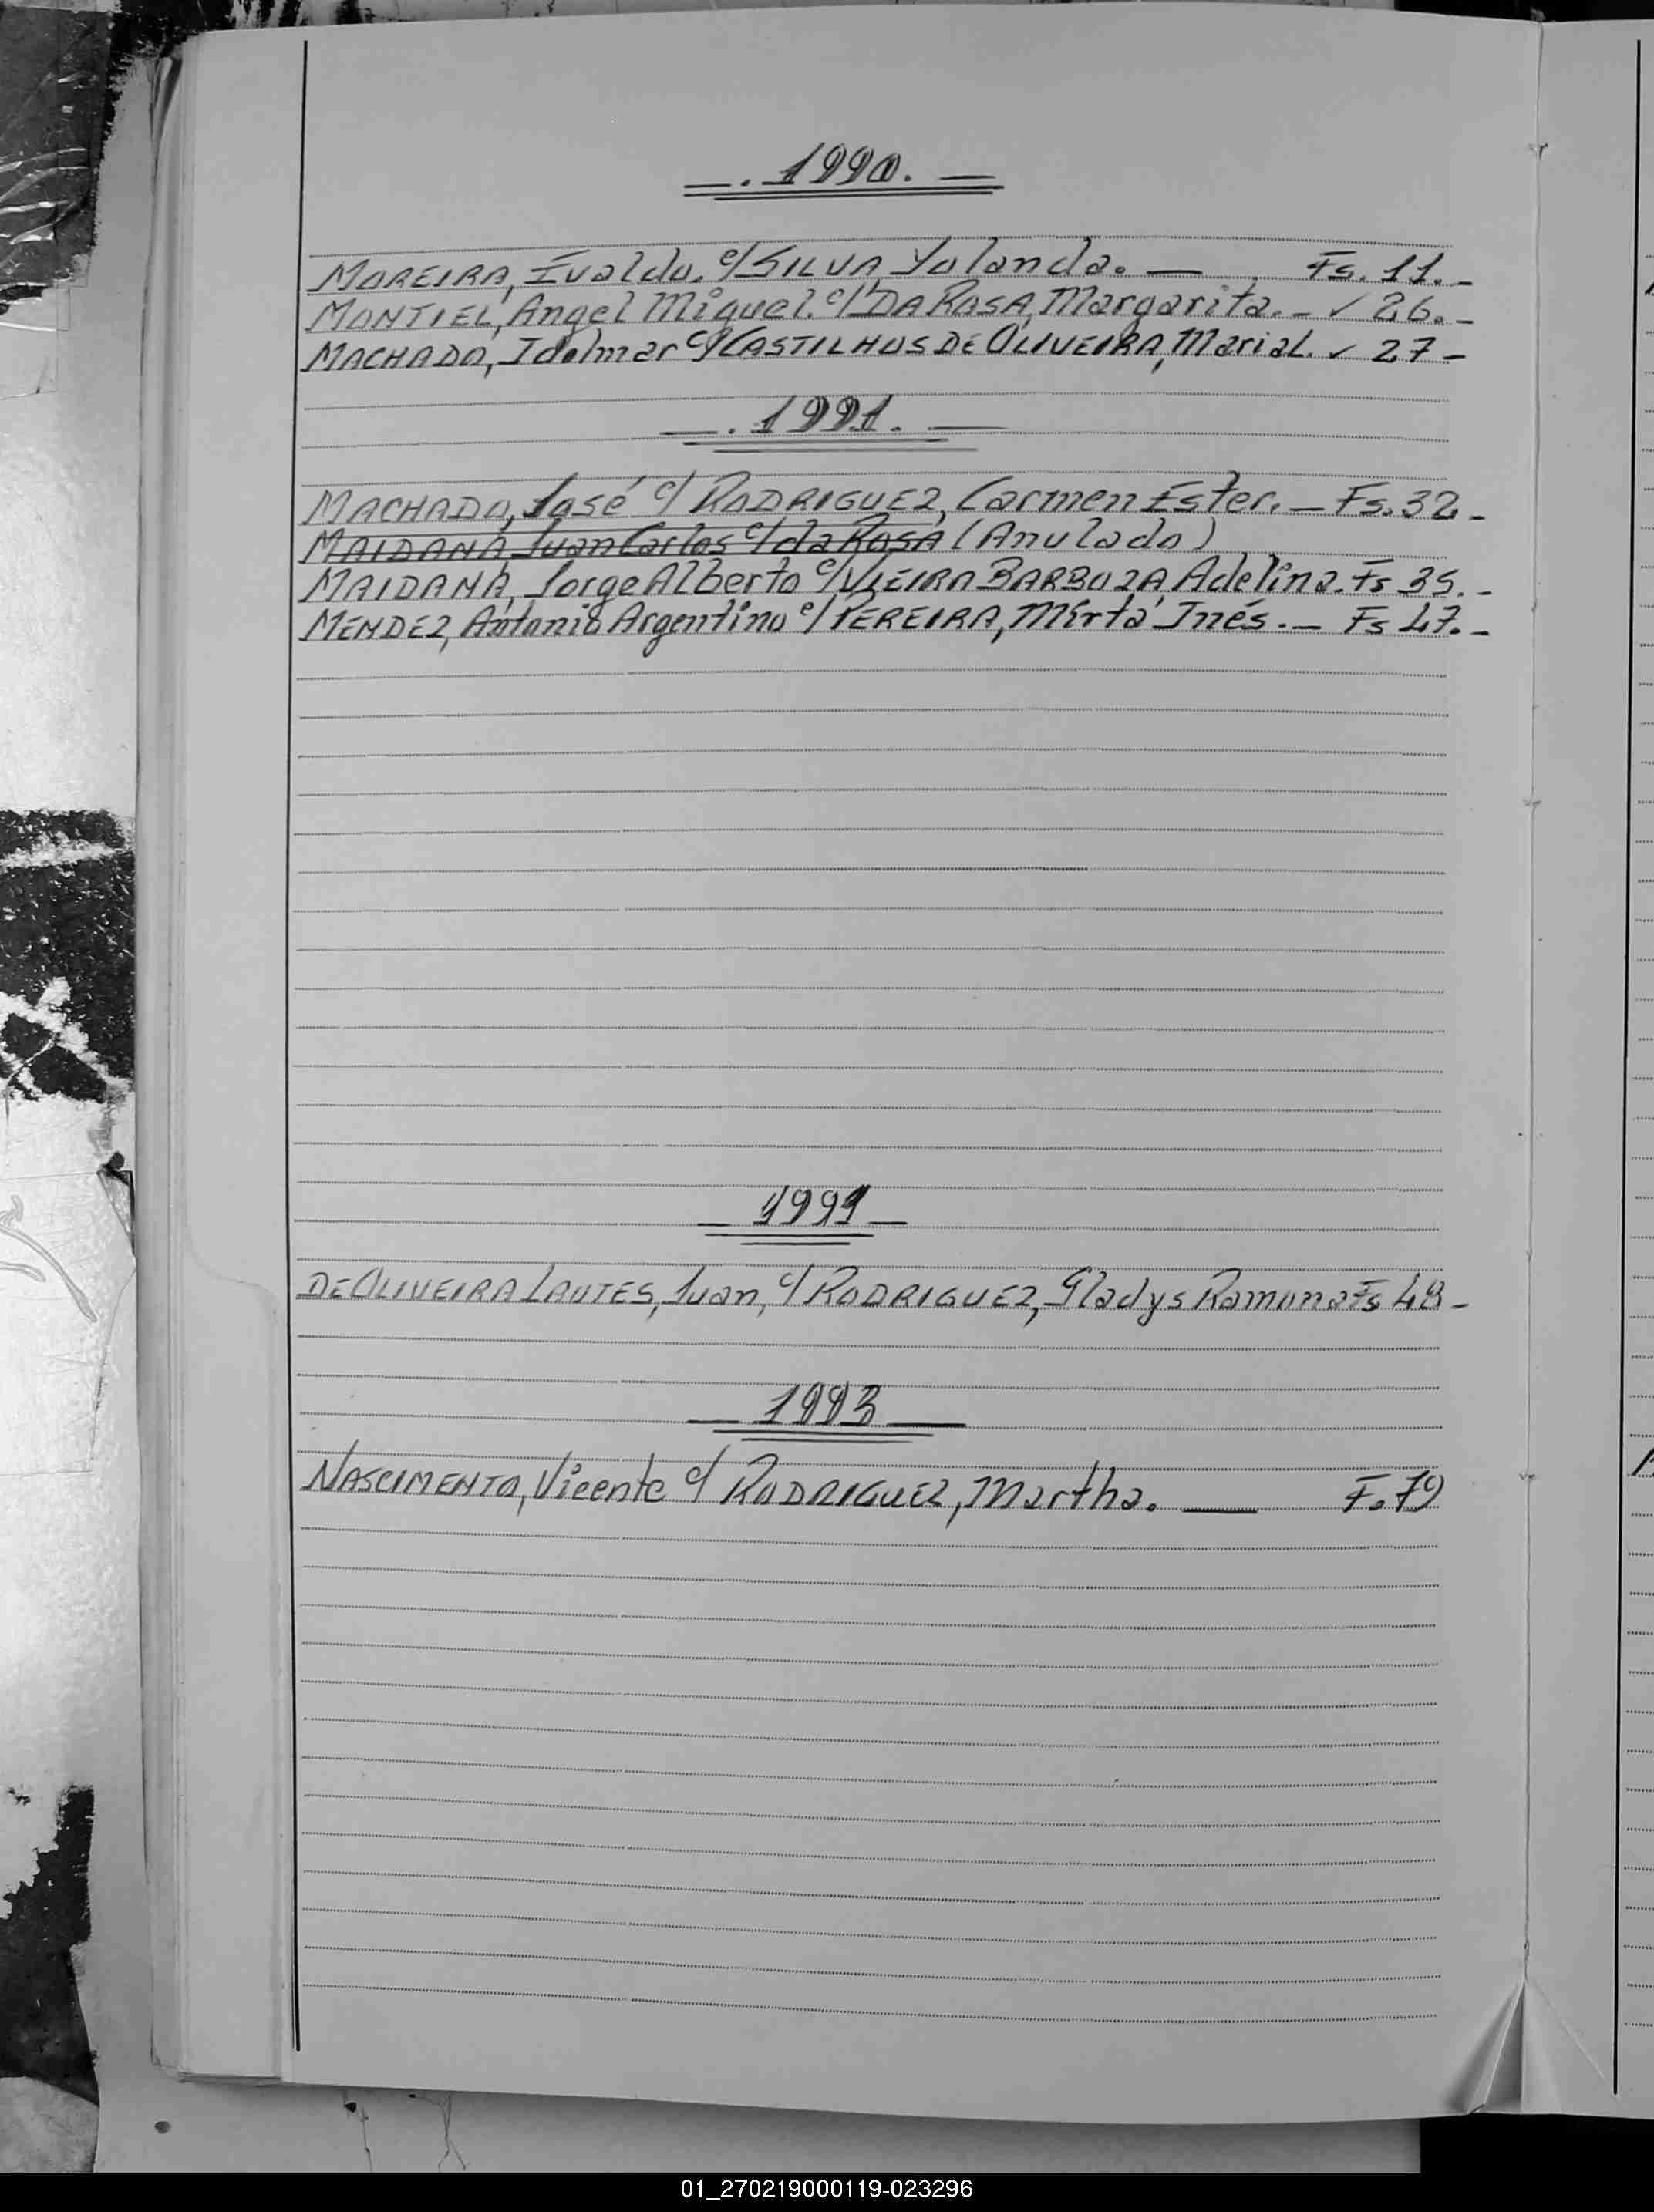 1990.
MOREIRA, Ivaldo. c/ SILVA, Yolanda. — Fs. 11. -
MONTIEL, Angel Miguel. c/ DA ROSA, Margarita. - ✓ 26. -
MACHADO, Idelmar c/ CASTILHOS DE OLIVEIRA, Maria L. ✓ 27 -
1991.
MACHADO, José c/ RODRIGUEZ, Carmen Ester. — Fs. 32. -
MAIDANA, Juan Carlos c/ da ROSA (Anulado)
MAIDANA, Jorge Alberto c/ VIEIRA BARBOZA, Adelina. Fs 35. -
MENDEZ, Antonio Argentino c/ PEREIRA, Mirta Inés. — Fs 47. -
1991
DE OLIVEIRA LAUTES, Juan, c/ RODRIGUEZ, Gladys Ramona Fs 48 -
1993
NASCIMENTO, Vicente c/ RODRIGUEZ, Martha. — F. 79
01_270219000119-023296